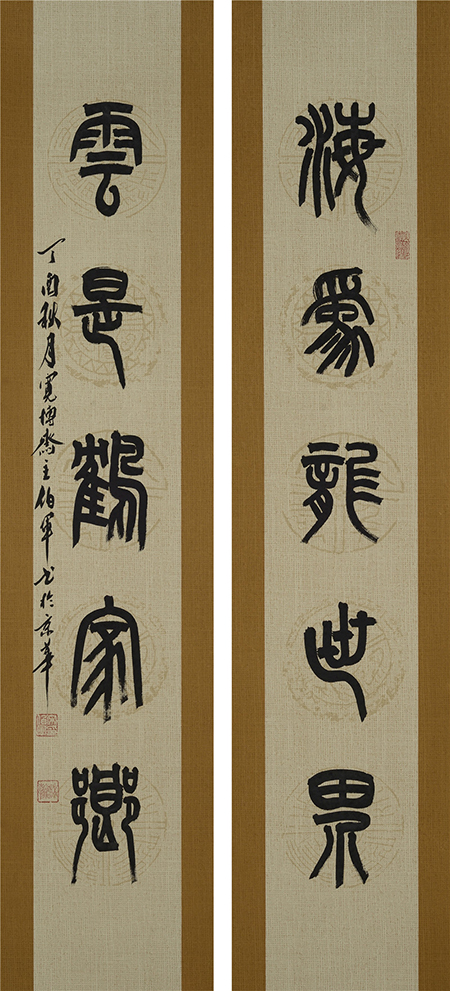 海爲龍世界
雲是鶴家鄉
丁酉秋月寬博齋主伯軍书於京華